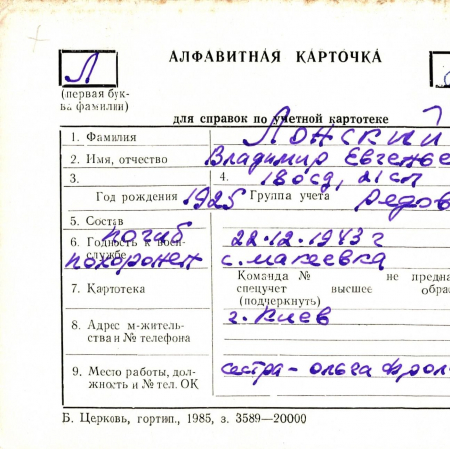 Л
(первая бук-
ва фамилии)
АЛФАВИТНАЯ КАРТОЧКА
для справок по учетной картотеке
1. Фамилия Лонский
2. Имя, отчество Владимир Евгенье
3. 4. 180сд, 21сп
Год рождения 1925 Группа учета рядов
5. Состав
погиб
6. Годность к воен- 22.12.1943 г
службе
похоронен с. Макеевка
Команда № не предна
7. Картотека спецучет высшее обра
(подчеркнуть)
8. Адрес м-житель- г. Киев
ства и № телефона
9. Место работы, дол- сестра - Ольга
жность и № тел. ОК
Б. Церковь, гортип., 1985, з. 3589—20000